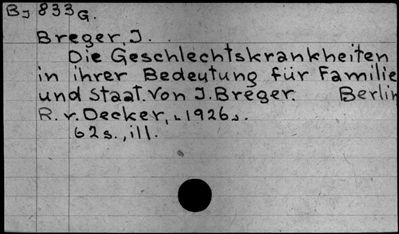 BJ 833G.
Breger, J.
Die Geschlechtskrankheiten
in ihrer Bedeutung für Familie
und Staat. Von J. Breger. Berlin
R. v. Decker, 1926.
62s., ill.